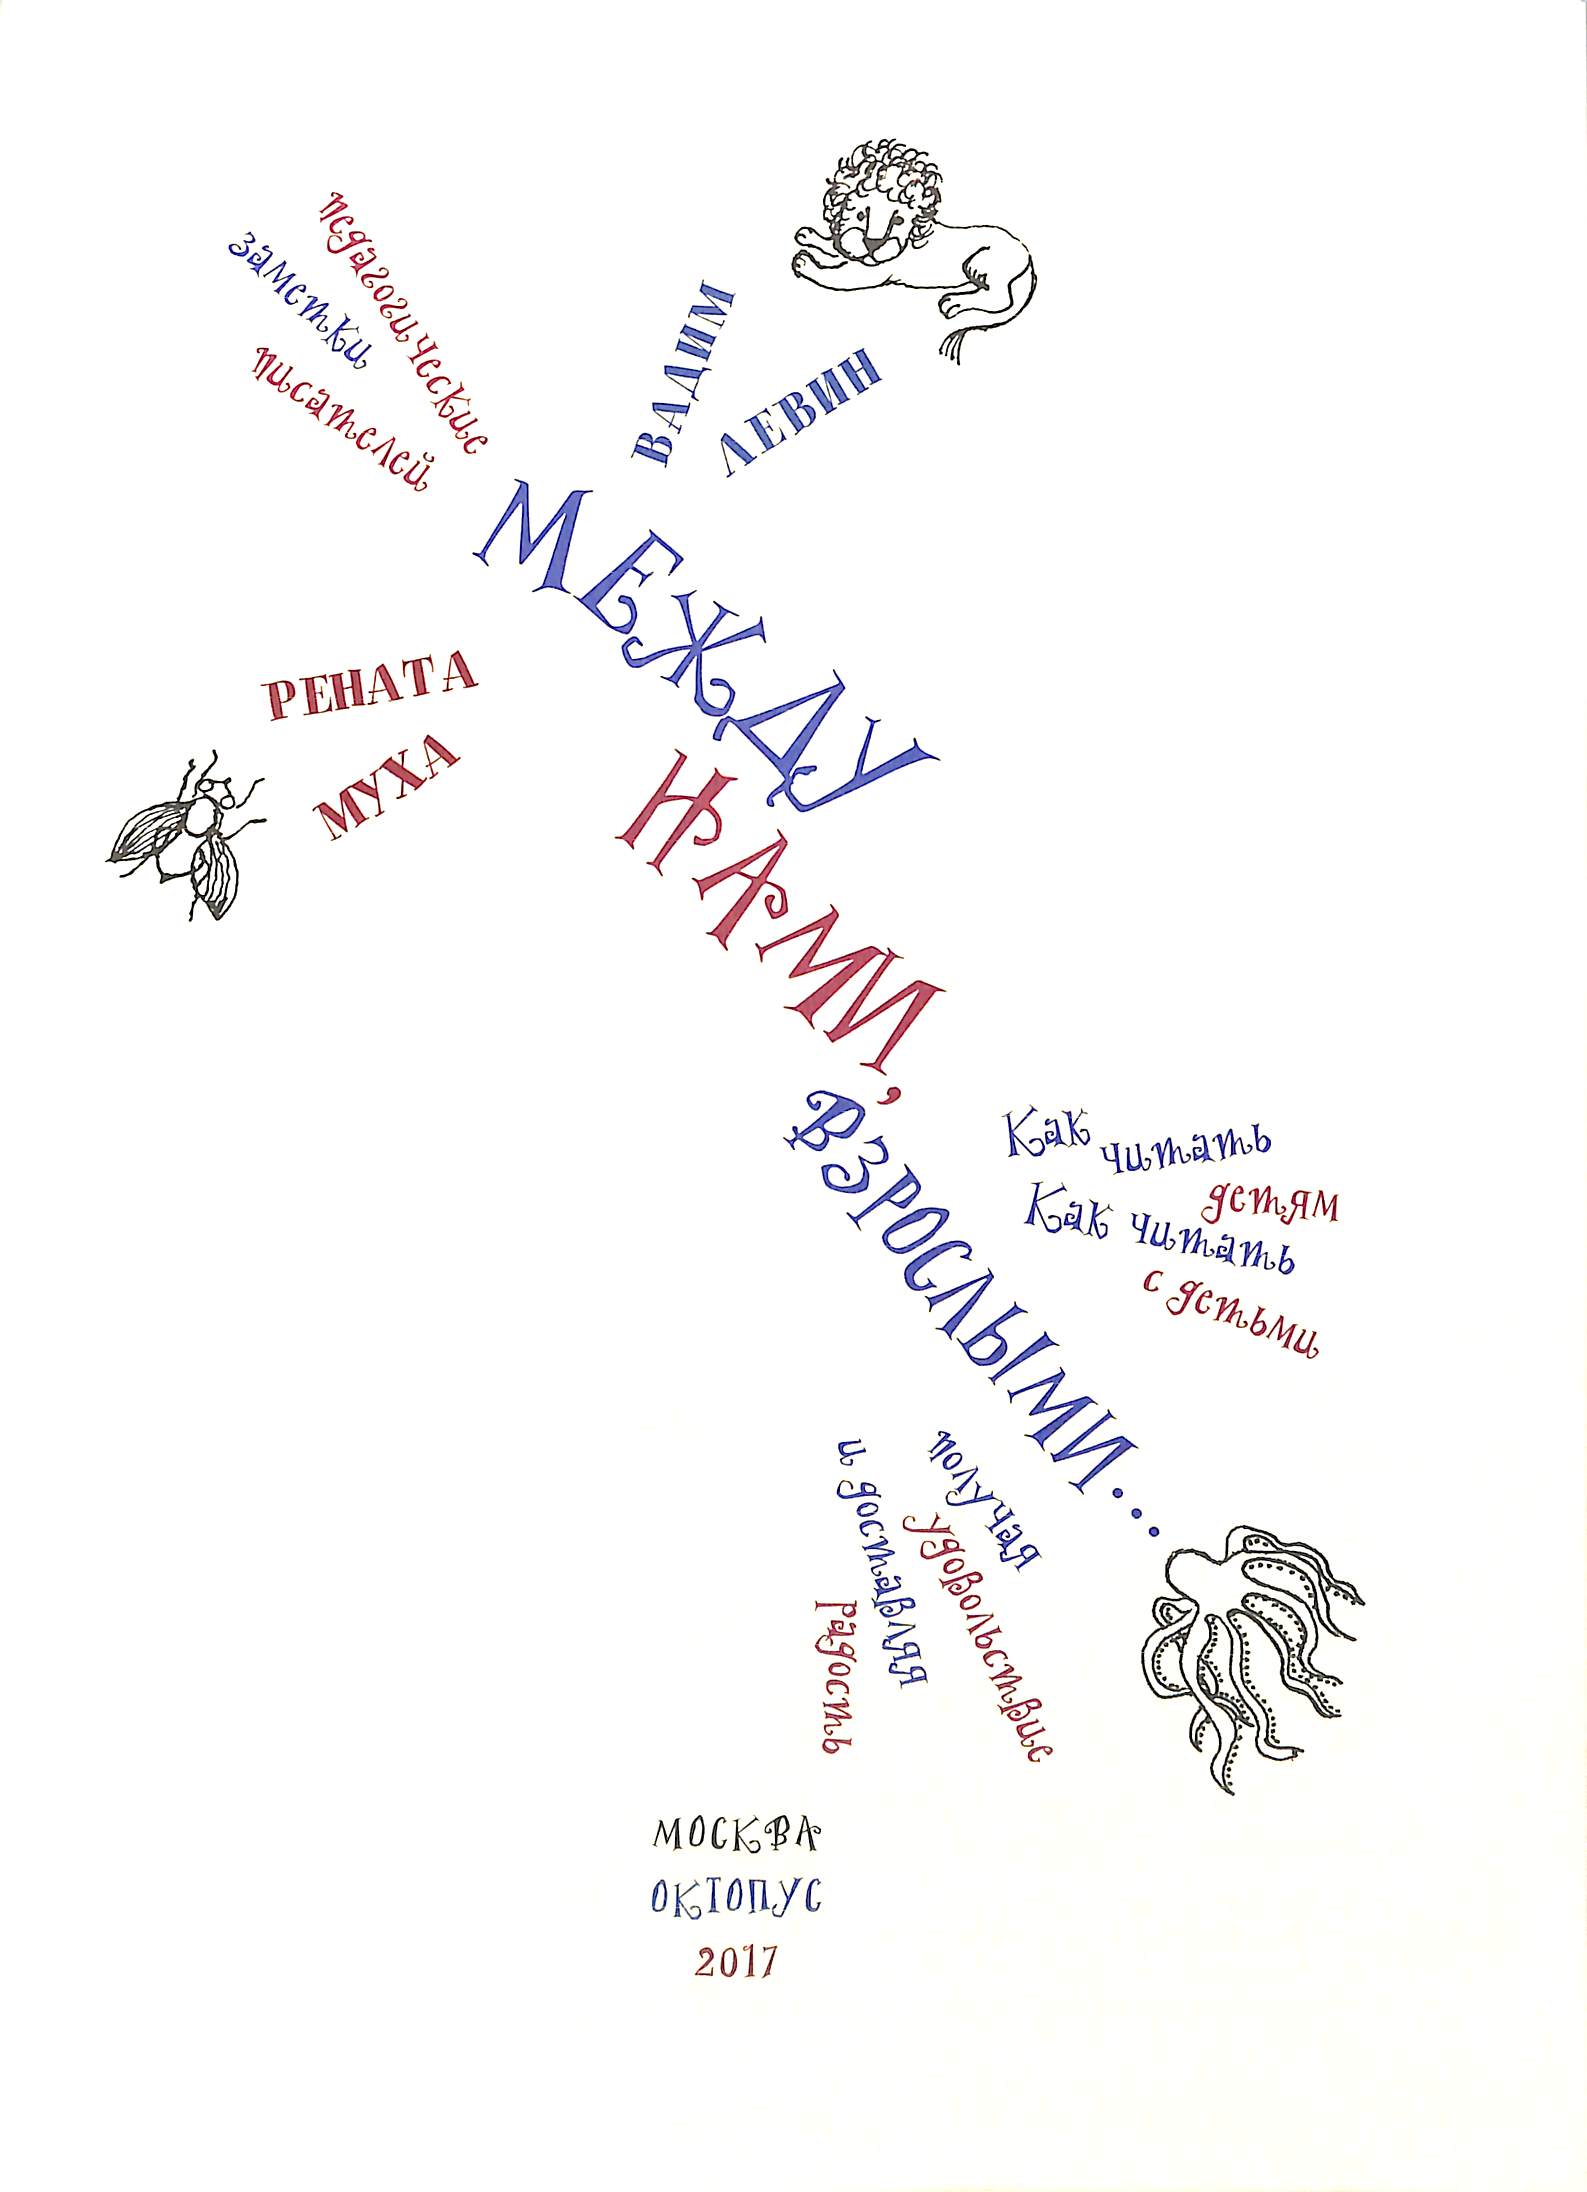 педагогические
заметки
писателей
ВАДИМ
ЛЕВИН
РЕНАТА
МУХА
МЕЖДУ
НАМИ,
ВЗРОСЛЫМИ...
Как
читать
детям
Как читать
с детьми
получая
удовольствие
и доставляя
радость
МОСКВА
ОКТОПУС
2017